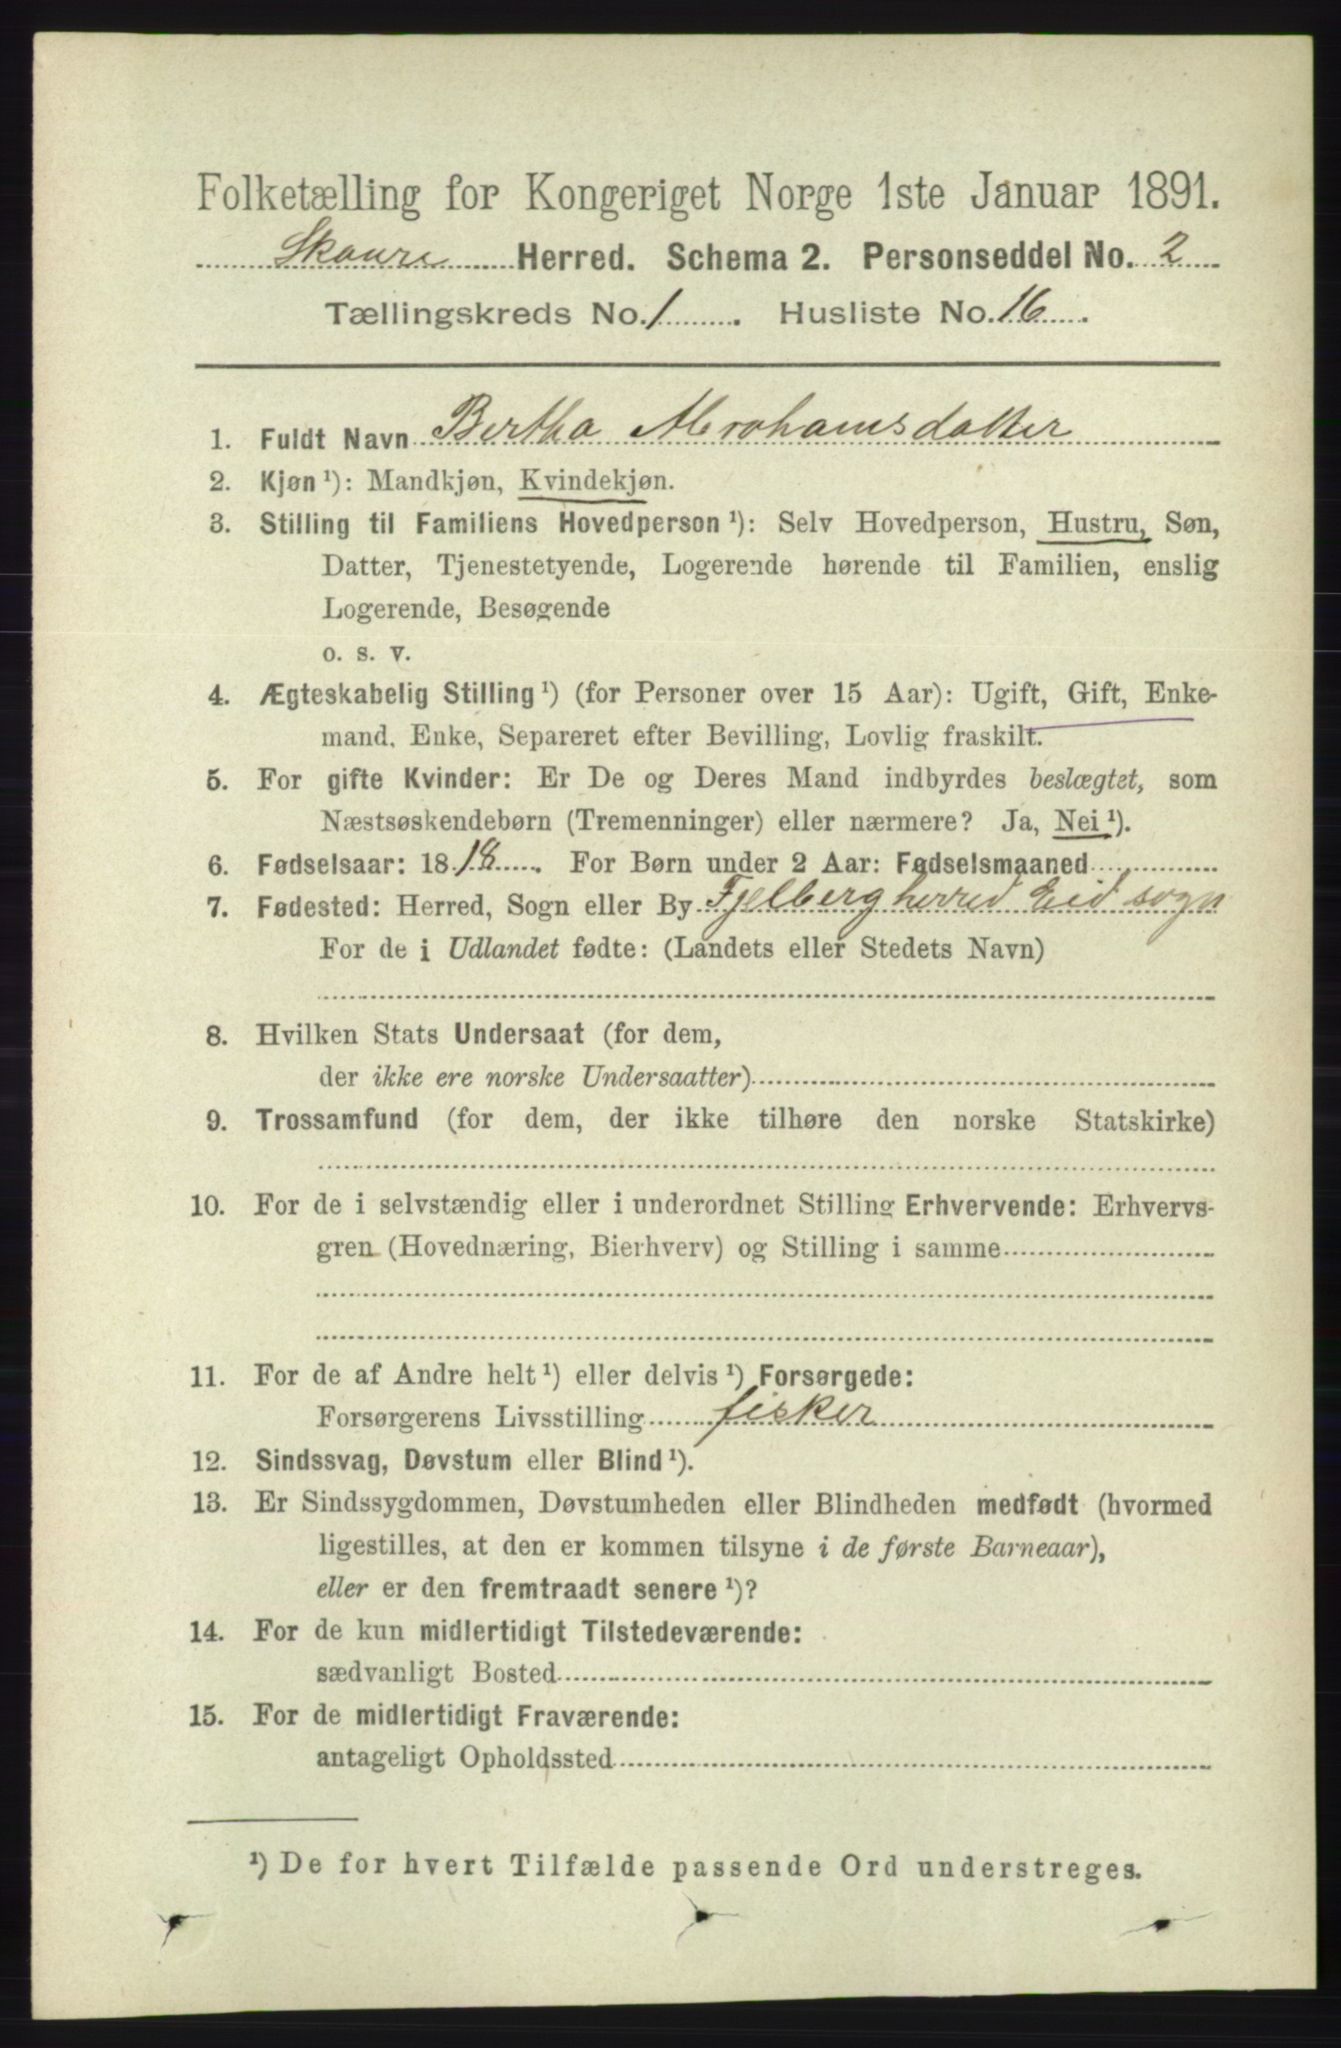 Folketælling for Kongeriget Norge 1ste Januar 1891.
Skaure Herred. Schema 2. Personseddel No. 2
Tællingskreds No. 1. Husliste No. 16.
1. Fuldt Navn Bertha Abrahamsdatter
2. Kjøn ¹): Mandkjøn, Kvindekjøn.
3. Stilling til Familiens Hovedperson ¹): Selv Hovedperson, Hustru, Søn,
Datter, Tjenestetyende, Logerende hørende til Familien, enslig
Logerende, Besøgende
o. s. v.
4. Ægteskabelig Stilling ¹) (for Personer over 15 Aar): Ugift, Gift, Enke-
mand, Enke, Separeret efter Bevilling, Lovlig fraskilt.
5. For gifte Kvinder: Er De og Deres Mand indbyrdes beslægtet, som
Næstsøskendebørn (Tremenninger) eller nærmere? Ja, Nei ¹).
6. Fødselsaar: 1818. For Børn under 2 Aar: Fødselsmaaned
7. Fødested: Herred, Sogn eller By Fjelberg herred Eid sogn
For de i Udlandet fødte: (Landets eller Stedets Navn)
8. Hvilken Stats Undersaat (for dem,
der ikke ere norske Undersaatter)
9. Trossamfund (for dem, der ikke tilhøre den norske Statskirke)
10. For de i selvstændig eller i underordnet Stilling Erhvervende: Erhvervs-
gren (Hovednæring, Bierhverv) og Stilling i samme
11. For de af Andre helt ¹) eller delvis ¹) Forsørgede:
Forsørgerens Livsstilling fisker
12. Sindssvag, Døvstum eller Blind ¹).
13. Er Sindssygdommen, Døvstumheden eller Blindheden medfødt (hvormed
ligestilles, at den er kommen tilsyne i de første Barneaar),
eller er den fremtraadt senere ¹)?
14. For de kun midlertidigt Tilstedeværende:
sædvanligt Bosted
15. For de midlertidigt Fraværende:
antageligt Opholdssted
¹) De for hvert Tilfælde passende Ord understreges.